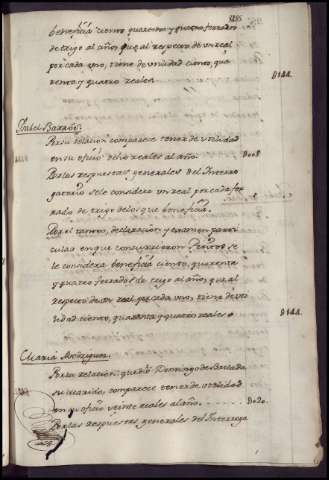 beneficia ciento quarenta y quatro ferrados
de trigo al año, que al respecto de un real
por cada uno, tiene de utilidad ciento, qua
renta y quatro reales D144.
Ysabel
Por su relacion comparece tener de utilidad
en su oficio ocho reales al año. D008
Por las respuestas generales del Interro
gatorio se le considera un real por cada fer
rado de trigo de los que beneficia.
Por el tanteo, declarazion y examen parti
culas en que concurrieron Peritos se
le considera beneficia ciento, quarenta
y quatro ferrados de trigo al año, que al
respecto de un real por cada uno, tiene de uti
lidad ciento, quarenta y quatro reales D144.
Maria
Por su relacion que dio Domingo de
su marido, comparece tener de utilidad
en su oficio veinte reales al año. D020.
Por las respuestas generales del Interroga